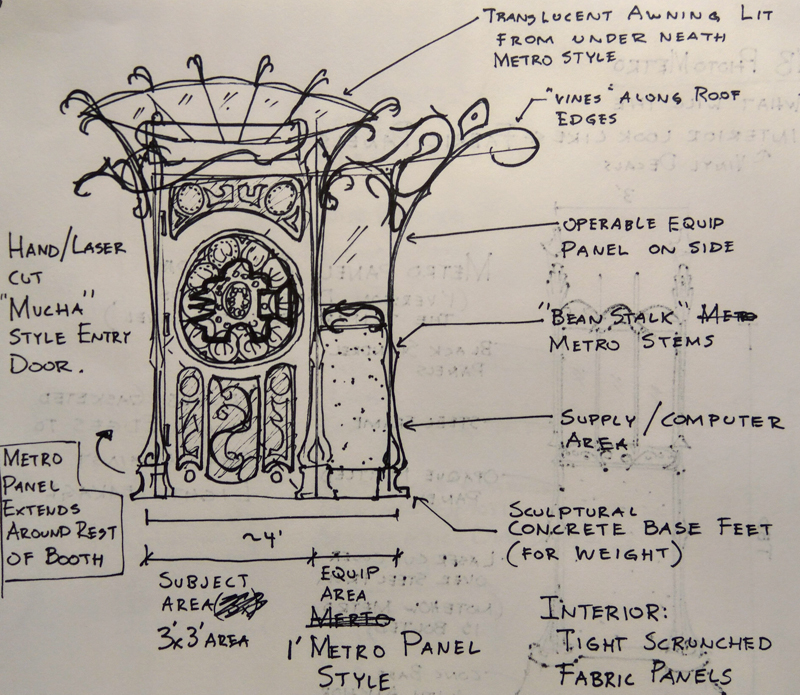 TRANSLUCENT AWNING LIT
FROM UNDER NEATH
METRO STYLE
"VINES" ALONG ROOF
EDGES
OPERABLE EQUIP
PANEL ON SIDE
HAND/LASER
CUT
"MUCHA"
STYLE ENTRY
DOOR.
"BEAN STALK"
METRO STEMS
SUPPLY/COMPUTER
AREA
METRO
PANEL
EXTENDS
AROUND REST
OF BOOTH
SCULPTURAL
CONCRETE BASE FEET
(FOR WEIGHT)
~4'
SUBJECT
AREA
3'x3' AREA
EQUIP
AREA
1' METRO PANEL
STYLE
INTERIOR:
TIGHT SCRUNCHED
FABRIC PANELS